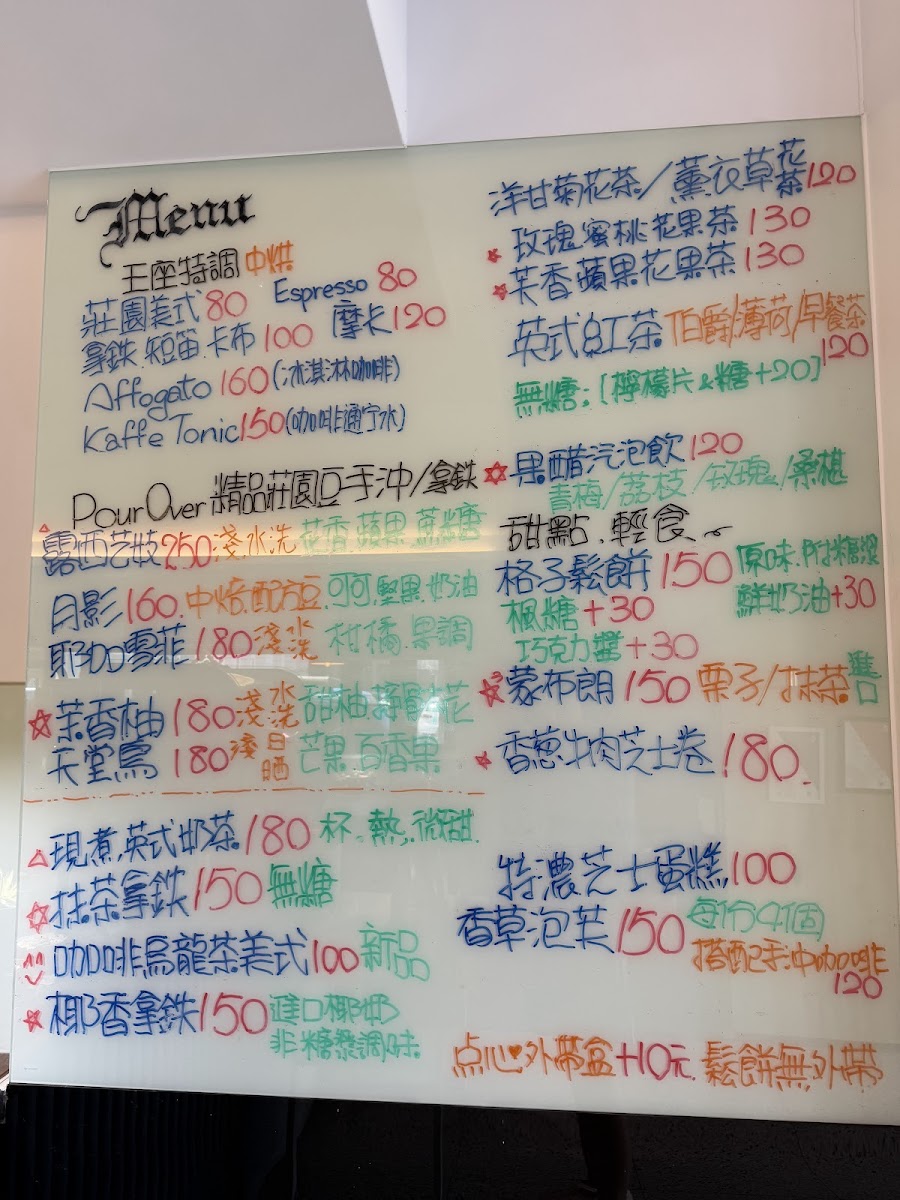 Menu
王座特調 中烘
莊園美式 80 Espresso 80
拿鉄.短笛.卡布 100 摩卡 120
Affogato 160 (冰淇淋咖啡)
Kaffe Tonic 150 (咖啡通宁水)
Pour Over 精品莊園豆手冲/拿鉄
露西艺妓 250 淺.水洗 花香.蘋果.蔗糖
月影 160. 中焙.配方豆. 可可.堅果.奶油
耶加雪菲 180 淺水洗 柑橘.果調
茉香柚 180 淺水洗 甜柚.檸檬花
天堂鳥 180 淺日晒 芒果.百香果
現煮.英式奶茶. 180 杯.熱.微甜.
抹茶拿鉄 150 無糖
咖啡烏龍茶美式 100 新品
椰香拿鉄 150 進口椰奶
非糖漿調味.
洋甘菊花茶/薰衣草花茶 120
玫瑰蜜桃花果茶 130
芙香蘋果花果茶 130
英式紅茶 伯爵/薄荷/早餐茶
120
無糖. [檸檬片&糖+20]
果醋汽泡飲 120
青梅/荔枝/玫瑰/桑椹
甜點.輕食~
格子鬆餅 150 原味.附糖漿
楓糖 +30 鮮奶油+30
巧克力醬 +30
蒙布朗 150 栗子/抹茶. 進口
香葱牛肉芝士卷 180.
特濃芝士蛋糕 100
香草泡芙 150 每1份4個
搭配手冲咖啡
120
点心♥外帶盒+10元. 鬆餅無外帶